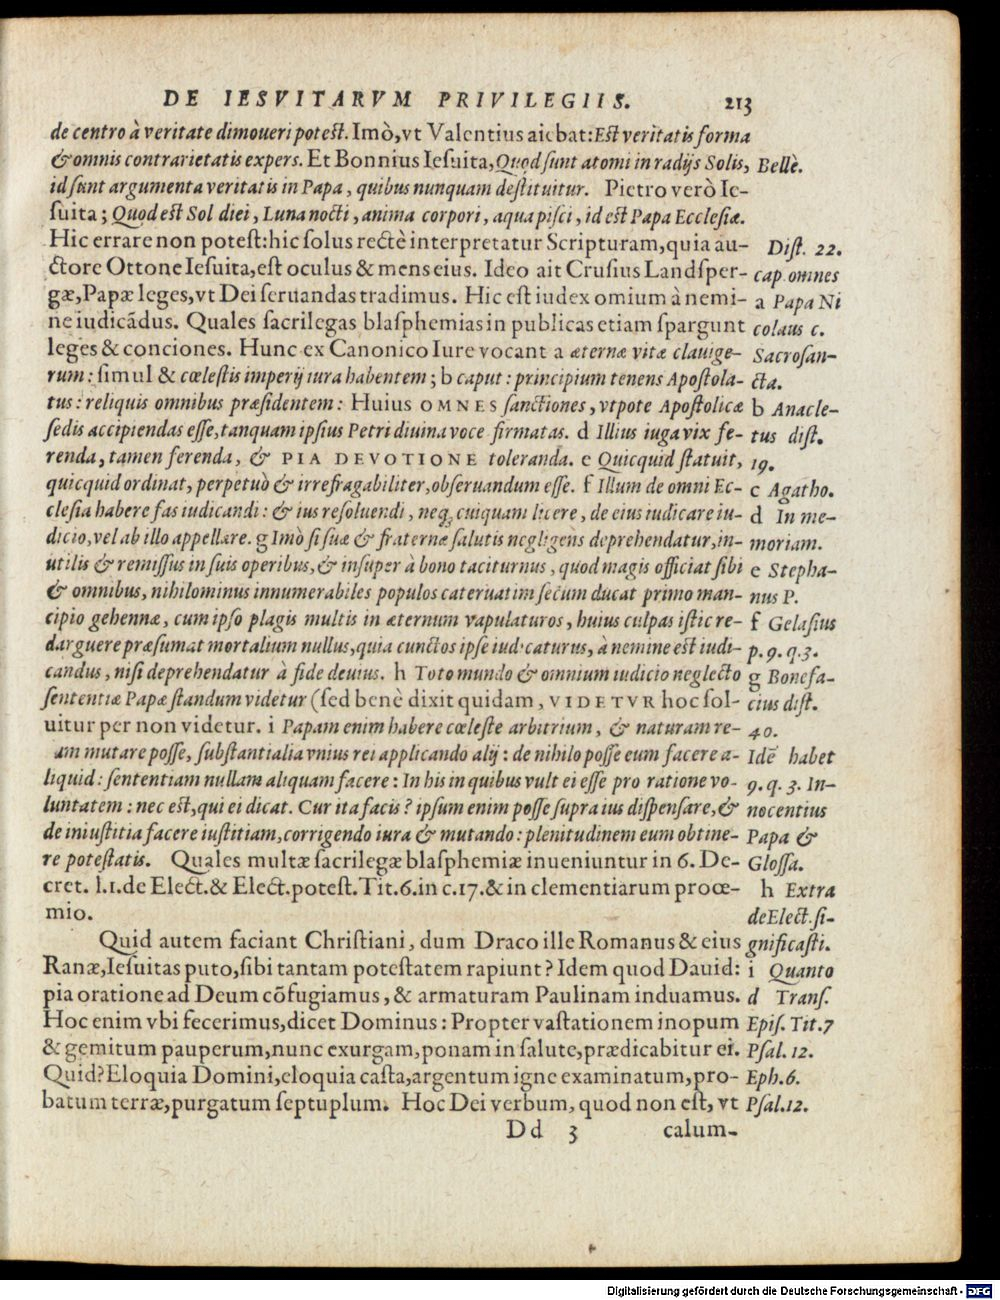 DE IESVITARVM PRIVILEGIIS. 213
de centro à veritate dimoueri potest. Imò, vt Valentius aiebat: Est veritatis forma
& omnis contrarietatis expers. Et Bonnius Iesuita, Quod sunt atomi in radijs Solis, Bellè.
id sunt argumenta veritatis in Papa, quibus nunquam destituitur. Pietro verò Ie-
suita; Quod est Sol diei, Luna nocti, anima corpori, aqua pisci, id est Papa Ecclesiæ.
Hic errare non potest: hic solus rectè interpretatur Scripturam, quia au- Dist. 22.
ctore Ottone Iesuita, est oculus & mens eius. Ideo ait Crusius Landsper- cap. omnes
gæ, Papæ leges, vt Dei seruandas tradimus. Hic est iudex omium à nemi- a Papa Ni
ne iudicādus. Quales sacrilegas blasphemias in publicas etiam spargunt colaus c.
leges & conciones. Hunc ex Canonico Iure vocant a æternæ vitæ clauige- Sacrosan-
rum: simul & cœlestis imperij iura habentem; b caput: principium tenens Apostola- cta.
tus: reliquis omnibus præsidentem: Huius OMNES sanctiones, vtpote Apostolicæ b Anacle-
sedis accipiendas esse, tanquam ipsius Petri diuina voce firmatas. d Illius iuga vix fe- tus dist.
renda, tamen ferenda, & PIA DEVOTIONE toleranda. e Quicquid statuit, 19.
quicquid ordinat, perpetuò & irrefragabiliter, obseruandum esse. f Illum de omni Ec- c Agatho.
clesia habere fas iudicandi: & ius resoluendi, neq; cuiquam licere, de eius iudicare iu- d In me-
dicio, vel ab illo appellare. g Imò si suæ & fraternæ salutis negligens deprehendatur, in- moriam.
utilis & remissus in suis operibus, & insuper à bono taciturnus, quod magis officiat sibi e Stepha-
& omnibus, nihilominus innumerabiles populos cateruatim secum ducat primo man- nus P.
cipio gehennæ, cum ipso plagis multis in æternum vapulaturos, huius culpas istic re- f Gelasius
darguere præsumat mortalium nullus, quia cunctos ipse iudicaturus, à nemine est iudi- p. 9. q. 3.
candus, nisi deprehendatur à fide deuius. h Toto mundo & omnium iudicio neglecto g Bonefa-
sententiæ Papæ standum videtur (sed benè dixit quidam, VIDETVR hoc sol- cius dist.
uitur per non videtur. i Papam enim habere cœleste arbitrium, & naturam re- 40.
am mutare posse, substantialia vnius rei applicando alij: de nihilo posse eum facere a- Idē habet
liquid: sententiam nullam aliquam facere: In his in quibus vult ei esse pro ratione vo- 9. q. 3. In-
luntatem: nec est, qui ei dicat. Cur ita facis? ipsum enim posse supra ius dispensare, & nocentius
de iniustitia facere iustitiam, corrigendo iura & mutando: plenitudinem eum obtine- Papa &
re potestatis. Quales multæ sacrilegæ blasphemiæ inueniuntur in 6. De- Glossa.
cret. l.1. de Elect. & Elect. potest. Tit. 6. in c. 17. & in clementiarum procœ- h Extra
mio. de Elect. si-
Quid autem faciant Christiani, dum Draco ille Romanus & eius gnificasti.
Ranæ, Iesuitas puto, sibi tantam potestatem rapiunt? Idem quod Dauid: i Quanto
pia oratione ad Deum cōfugiamus, & armaturam Paulinam induamus. d Trans.
Hoc enim vbi fecerimus, dicet Dominus: Propter vastationem inopum Epis. Tit. 7
& gemitum pauperum, nunc exurgam, ponam in salute, prædicabitur ei. Psal. 12.
Quid? Eloquia Domini, eloquia casta, argentum igne examinatum, pro- Eph. 6.
batum terræ, purgatum septuplum. Hoc Dei verbum, quod non est, vt Psal. 12.
Dd 3 calum-
Digitalisierung gefördert durch die Deutsche Forschungsgemeinschaft - DFG